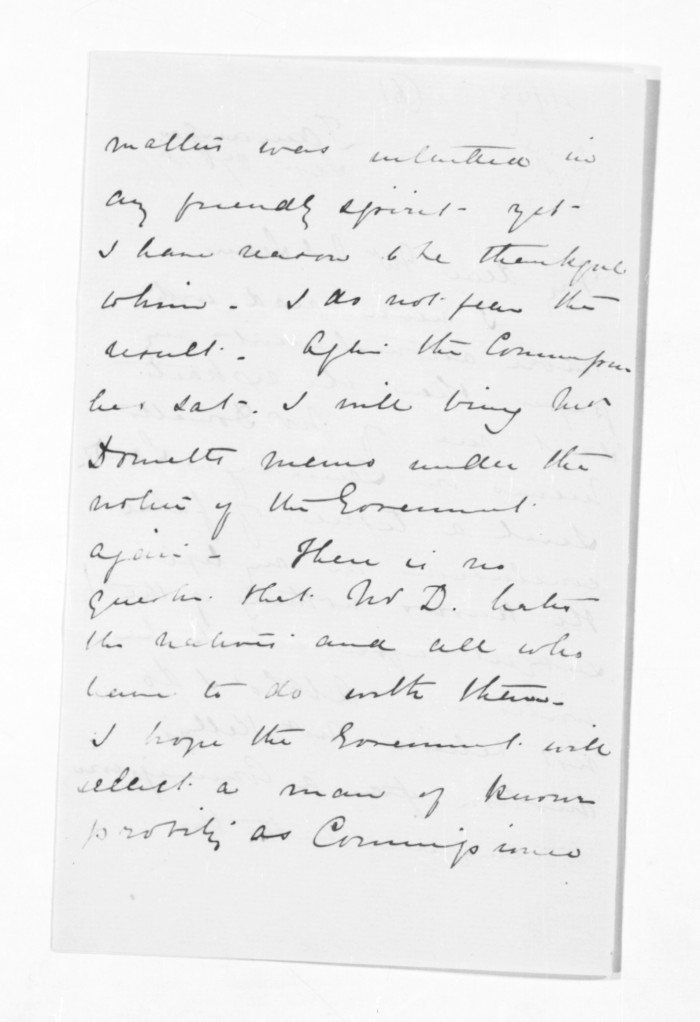 matters was in
any friendly spirit - yet -
I have reason to be thankful
to him - I do not fear the
result - After the Commission
has sat - I will bring Mr
Domett's memo under the
notice of the Government
again - There is no
question that Mr D. hates
the natives and all who
have to do with them -
I hope the Government will
select a man of known
probity as Commissioner